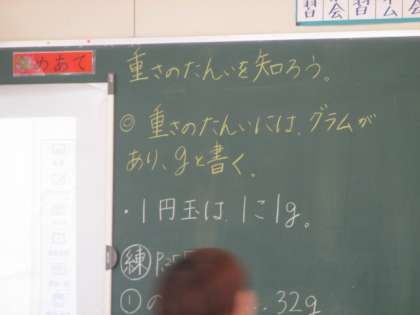 習 会 習 会
めあて
重さのたんいを知ろう。
◎ 重さのたんいには、グラムが
あり、gと書く。
・1円玉は、1こ1g。
練
① の 32g